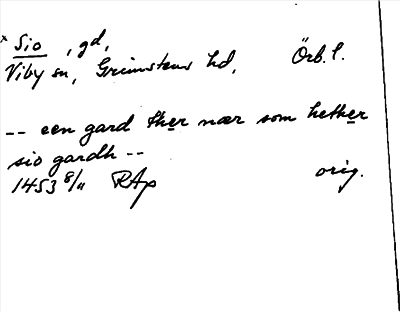 x Sio, gd,
Viby sn, Grimstens hd, Örb. l.
-- een gard ther nær som hether
sio gardh --
1453 8/11 RAp orig.